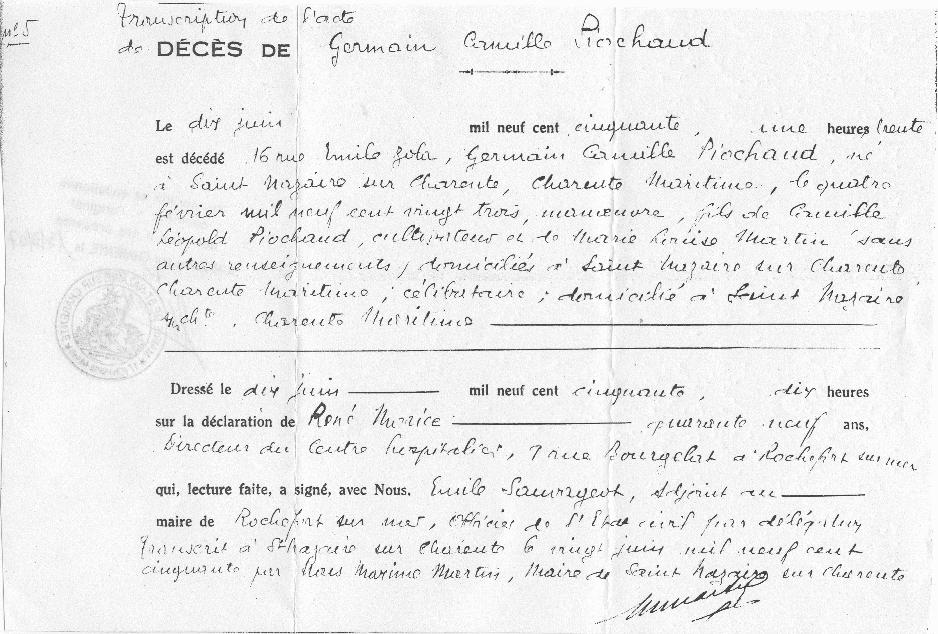 Transcription de l'acte
n° 5
de DÉCÈS DE Germain Camille Piochaud
Le dix juin mil neuf cent cinquante, une heures trente
est décédé 16 rue Emile Zola, Germain Camille Piochaud, né
à Saint Nazaire sur Charente, Charente Maritime, le quatre
février mil neuf cent vingt trois, manœuvre, fils de Camille
Léopold Piochaud, cultivateur et de Marie Louise Martin sans
autres renseignements, domiciliés à Saint Nazaire sur Charente
Charente Maritime ; célibataire ; domicilié à Saint Nazaire
s/ch<sup>te</sup>, Charente Maritime
Dressé le dix juin mil neuf cent cinquante, dix heures
sur la déclaration de René quarante neuf ans,
Directeur du Centre hospitalier, 7 rue à Rochefort sur mer
qui, lecture faite, a signé, avec Nous. Emile Sauvageot, adjoint au
maire de Rochefort sur mer, Officier de l'Etat civil par délégation
Transcrit à St Nazaire sur Charente le vingt juin mil neuf cent
cinquante par Nous Maxime Martin, Maire de Saint Nazaire sur Charente